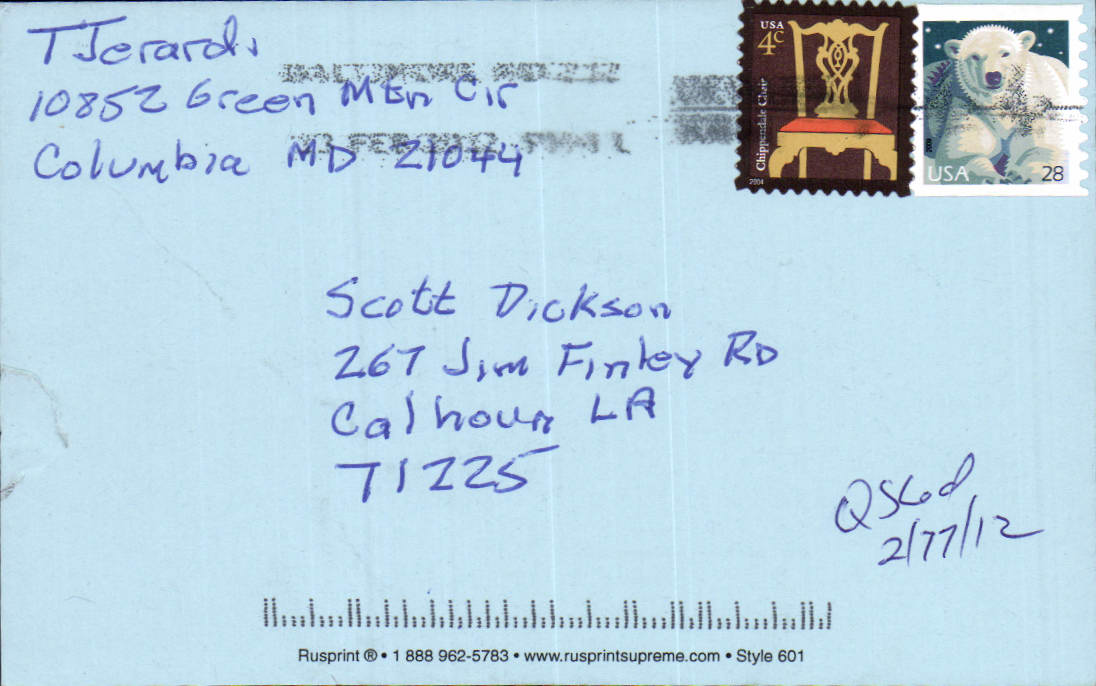 T Jerardi
10852 Green Mtn Cir
Columbia MD 21044
USA
4c
Chippendale Chair
2004
USA 28
Scott Dickson
267 Jim Finley RD
Calhoun LA
71225
QSLed
2/77/12
Rusprint ® • 1 888 962-5783 • www.rusprintsupreme.com • Style 601